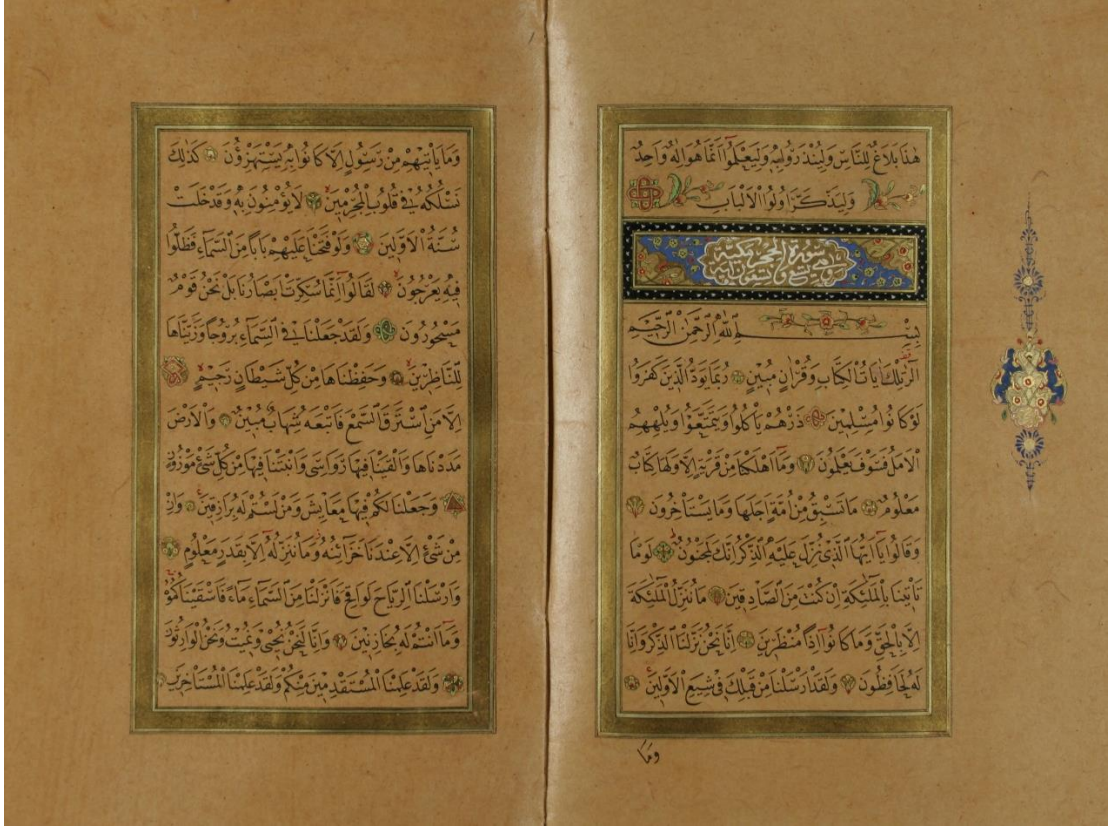 هٰذَا بَلَاغٌ لِلنَّاسِ وَلِيُنْذَرُوا بِهِ وَلِيَعْلَمُوا اَنَّمَا هُوَ اِلٰهٌ وَاحِدٌ
وَلِيَذَّكَّرَ اُولُوا الْاَلْبَابِ
سورة الحجر مكية
وهي تسع وتسعون آية
بِسْمِ اللّٰهِ الرَّحْمٰنِ الرَّحِيمِ
الٓرٰ تِلْكَ اٰيَاتُ الْكِتَابِ وَقُرْاٰنٍ مُبِينٍ رُبَمَا يَوَدُّ الَّذِينَ كَفَرُوا
لَوْ كَانُوا مُسْلِمِينَ ذَرْهُمْ يَأْكُلُوا وَيَتَمَتَّعُوا وَيُلْهِهِمُ
الْاَمَلُ فَسَوْفَ يَعْلَمُونَ وَمَا اَهْلَكْنَا مِنْ قَرْيَةٍ اِلَّا وَلَهَا كِتَابٌ
مَعْلُومٌ مَا تَسْبِقُ مِنْ اُمَّةٍ اَجَلَهَا وَمَا يَسْتَأْخِرُونَ
وَقَالُوا يَا اَيُّهَا الَّذِي نُزِّلَ عَلَيْهِ الذِّكْرُ اِنَّكَ لَمَجْنُونٌ لَوْمَا
تَأْتِينَا بِالْمَلٰئِكَةِ اِنْ كُنْتَ مِنَ الصَّادِقِينَ مَا نُنَزِّلُ الْمَلٰئِكَةَ
اِلَّا بِالْحَقِّ وَمَا كَانُوا اِذًا مُنْظَرِينَ اِنَّا نَحْنُ نَزَّلْنَا الذِّكْرَ وَاِنَّا
لَهُ لَحَافِظُونَ وَلَقَدْ اَرْسَلْنَا مِنْ قَبْلِكَ فِي شِيَعِ الْاَوَّلِينَ
وما
وَمَا يَأْتِيهِمْ مِنْ رَسُولٍ اِلَّا كَانُوا بِهِ يَسْتَهْزِؤُنَ كَذٰلِكَ
نَسْلُكُهُ فِي قُلُوبِ الْمُجْرِمِينَ لَا يُؤْمِنُونَ بِهِ وَقَدْ خَلَتْ
سُنَّةُ الْاَوَّلِينَ وَلَوْ فَتَحْنَا عَلَيْهِمْ بَابًا مِنَ السَّمَاءِ فَظَلُّوا
فِيهِ يَعْرُجُونَ لَقَالُوا اِنَّمَا سُكِّرَتْ اَبْصَارُنَا بَلْ نَحْنُ قَوْمٌ
مَسْحُورُونَ وَلَقَدْ جَعَلْنَا فِي السَّمَاءِ بُرُوجًا وَزَيَّنَّاهَا
لِلنَّاظِرِينَ وَحَفِظْنَاهَا مِنْ كُلِّ شَيْطَانٍ رَجِيمٍ
اِلَّا مَنِ اسْتَرَقَ السَّمْعَ فَاَتْبَعَهُ شِهَابٌ مُبِينٌ وَالْاَرْضَ
مَدَدْنَاهَا وَاَلْقَيْنَا فِيهَا رَوَاسِيَ وَاَنْبَتْنَا فِيهَا مِنْ كُلِّ شَيْءٍ مَوْزُونٍ
وَجَعَلْنَا لَكُمْ فِيهَا مَعَايِشَ وَمَنْ لَسْتُمْ لَهُ بِرَازِقِينَ وَاِنْ
مِنْ شَيْءٍ اِلَّا عِنْدَنَا خَزَائِنُهُ وَمَا نُنَزِّلُهُ اِلَّا بِقَدَرٍ مَعْلُومٍ
وَاَرْسَلْنَا الرِّيَاحَ لَوَاقِحَ فَاَنْزَلْنَا مِنَ السَّمَاءِ مَاءً فَاَسْقَيْنَاكُمُوهُ
وَمَا اَنْتُمْ لَهُ بِخَازِنِينَ وَاِنَّا لَنَحْنُ نُحْيِي وَنُمِيتُ وَنَحْنُ الْوَارِثُونَ
وَلَقَدْ عَلِمْنَا الْمُسْتَقْدِمِينَ مِنْكُمْ وَلَقَدْ عَلِمْنَا الْمُسْتَأْخِرِينَ